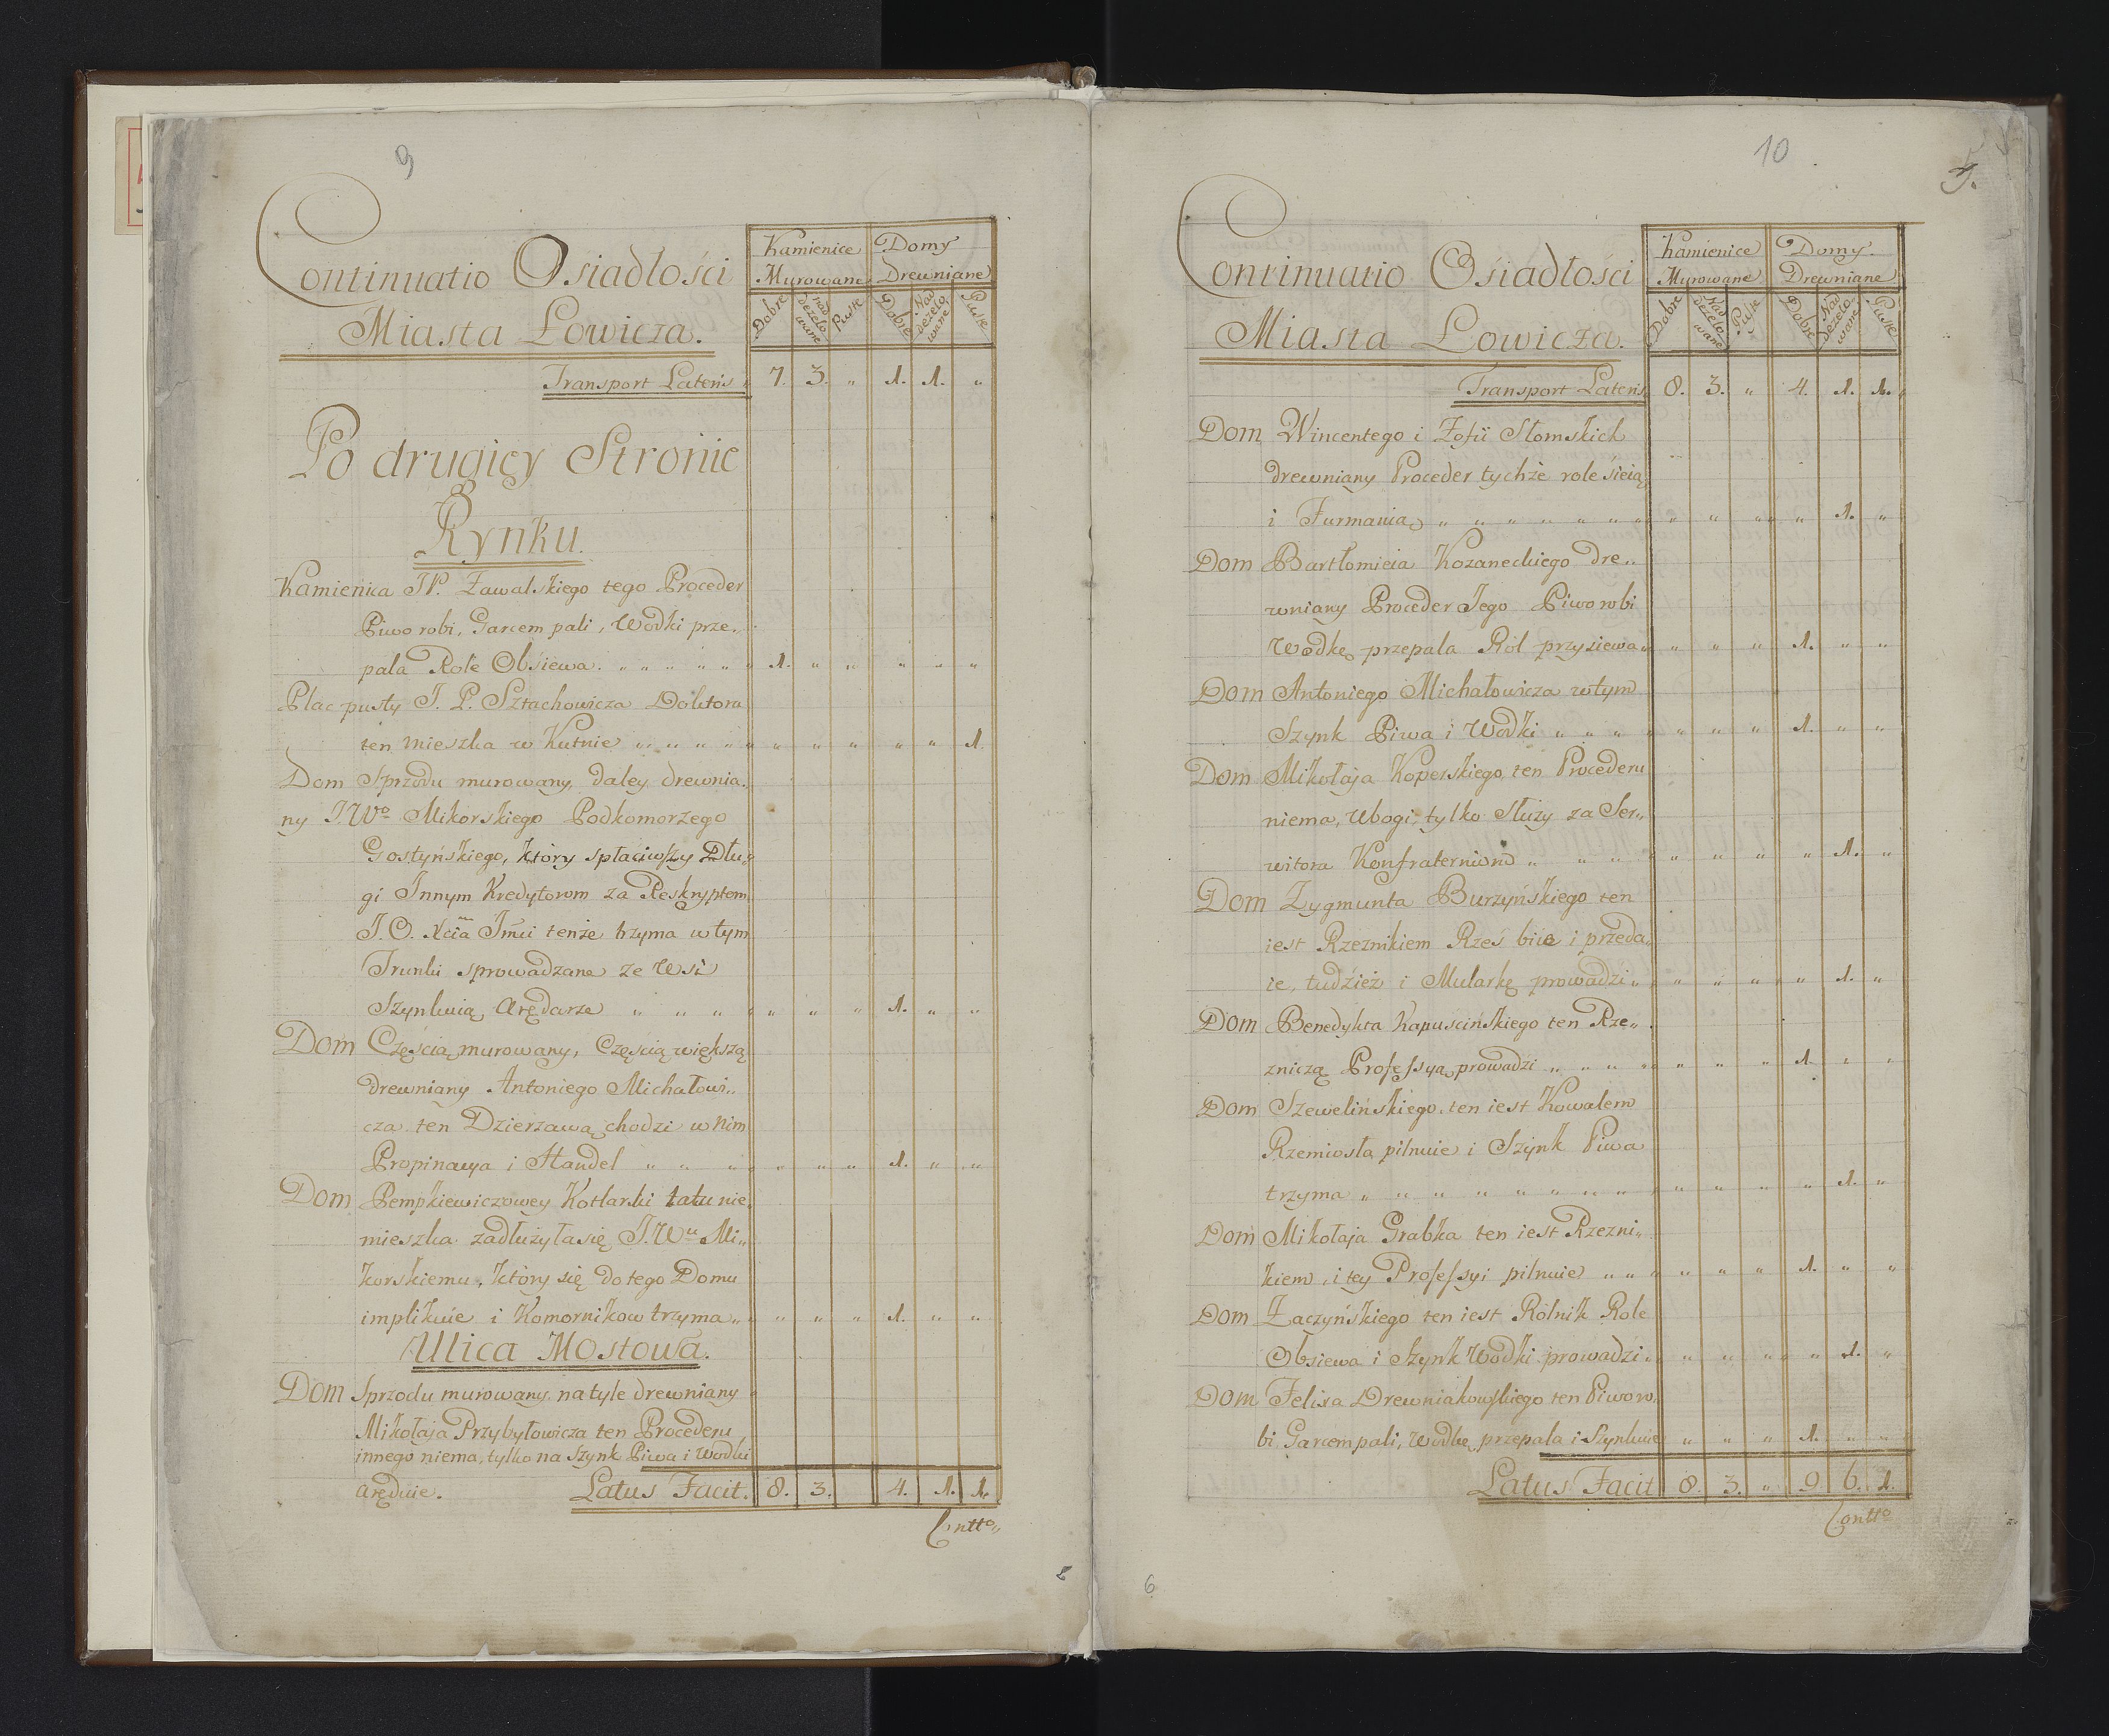 9
Continuatio Osiadłości
Miasta Łowicza.
Kamienice Murowane
Domy Drewniane
Dobre
nad dezelo wane
Puste
Dobre
Nad dezelo wane
Puste
Transport Lateris 7. 3. „ 1. 1. „
Po drugiey Stronie
Rynku.
Kamienica JP. Zawalskiego tego Proceder
Piwo robi, Garcem pali, Wodki prze„
pala Role Obsiewa. „ „ „ „ „ „ 1. „ „ „ „ „
Plac pusty J. P. Sztachowicza Doktora
ten mieszka w Kutnie „ „ „ „ „ „ „ „ „ „ 1.
Dom Sprzodu murowany, daley drewnia„
ny J.Wo Mikorskiego Podkomorzego
Gostyńskiego, który spłaciwszy Dłu„
gi Innym Kredytorom za Reskryptem
J. O. Xcia Jmci tenże trzyma w tym
Trunki sprowadzane ze Wsi
Szynkuią Arędarze „ „ „ „ „ „ „ 1. „ „
Dom Częścią murowany, Częścią większą
drewniany Antoniego Michałowi„
cza ten Dzierzawą chodzi w nim
Propinacya i Handel „ „ „ „ „ „ 1. „ „
Dom Pempkiewiczowey Kotlarki ta tu nie
mieszka zadłużyła się J.Wu Mi„
korskiemu, który się do tego Domu
implikuie i Komornikow trzyma „ „ „ „ „ 1. „ „
Ulica Mostowa.
Dom Sprzodu murowany, na tyle drewniany
Mikołaja Przybyłowicza ten Procederu
innego niema, tylko na Szynk Piwa i Wodki
aręduie. Latus Facit. 8. 3. 4. 1. 1.
Contto„
10
5.
Continuatio Osiadłości
Miasta Łowicza.
Kamienice Murowane
Domy Drewniane
Dobre
Nad dezelo wane
Puste
Dobre
Nad dezelo„ wane
Puste
Transport Lateris 8. 3. „ 4. 1. 1.
Dom Wincentego i Zofii Słomskich
drewniany Proceder tychże role sieią
i Furmanią „ „ „ „ „ „ „ „ „ „ „ 1. „
Dom Bartłomieia Kozaneckiego dre„
wniany Proceder Jego Piwo robi
Wodkę przepala Ról przysiewa „ „ „ „ 1. „ „
Dom Antoniego Michałowicza w tym
Szynk Piwa i Wodki „ „ „ „ „ „ „ 1. „ „
Dom Mikołaja Koperskiego ten Procederu
niema, Ubogi, tylko Służy za Ser„
witora Konfraterniom „ „ „ „ „ „ „ „ 1. „
Dom Zygmunta Burzyńskiego ten
iest Rzeznikiem Rzeż biie i przeda„
ie, tudzież i Mularkę prowadzi „ „ „ „ „ 1. „
Dom Benedykta Kapuscińskiego ten Rze„
zniczą Professyą prowadzi „ „ „ „ „ „ „ 1. „ „
Dom Szewelińskiego ten iest Kowalem
Rzemiosła pilnuie i Szynk Piwa
trzyma „ „ „ „ „ „ „ „ „ „ „ „ 1. „
Dom Mikołaja Grabka ten iest Rzezni„
kiem, i tey Professyi pilnuie „ „ „ „ „ „ 1. „ „
Dom Zaczyńskiego ten iest Rólnik Role
Obsiewa i Szynk Wodki prowadzi „ „ „ „ „ 1. „
Dom Felixa Drewniakowskiego ten Piwo ro„
bi, Garcem pali, Wodkę przepala i Szynkuie „ „ „ 1. „ „
Latus Facit 8. 3. „ 9. 6. 1.
Contto
6